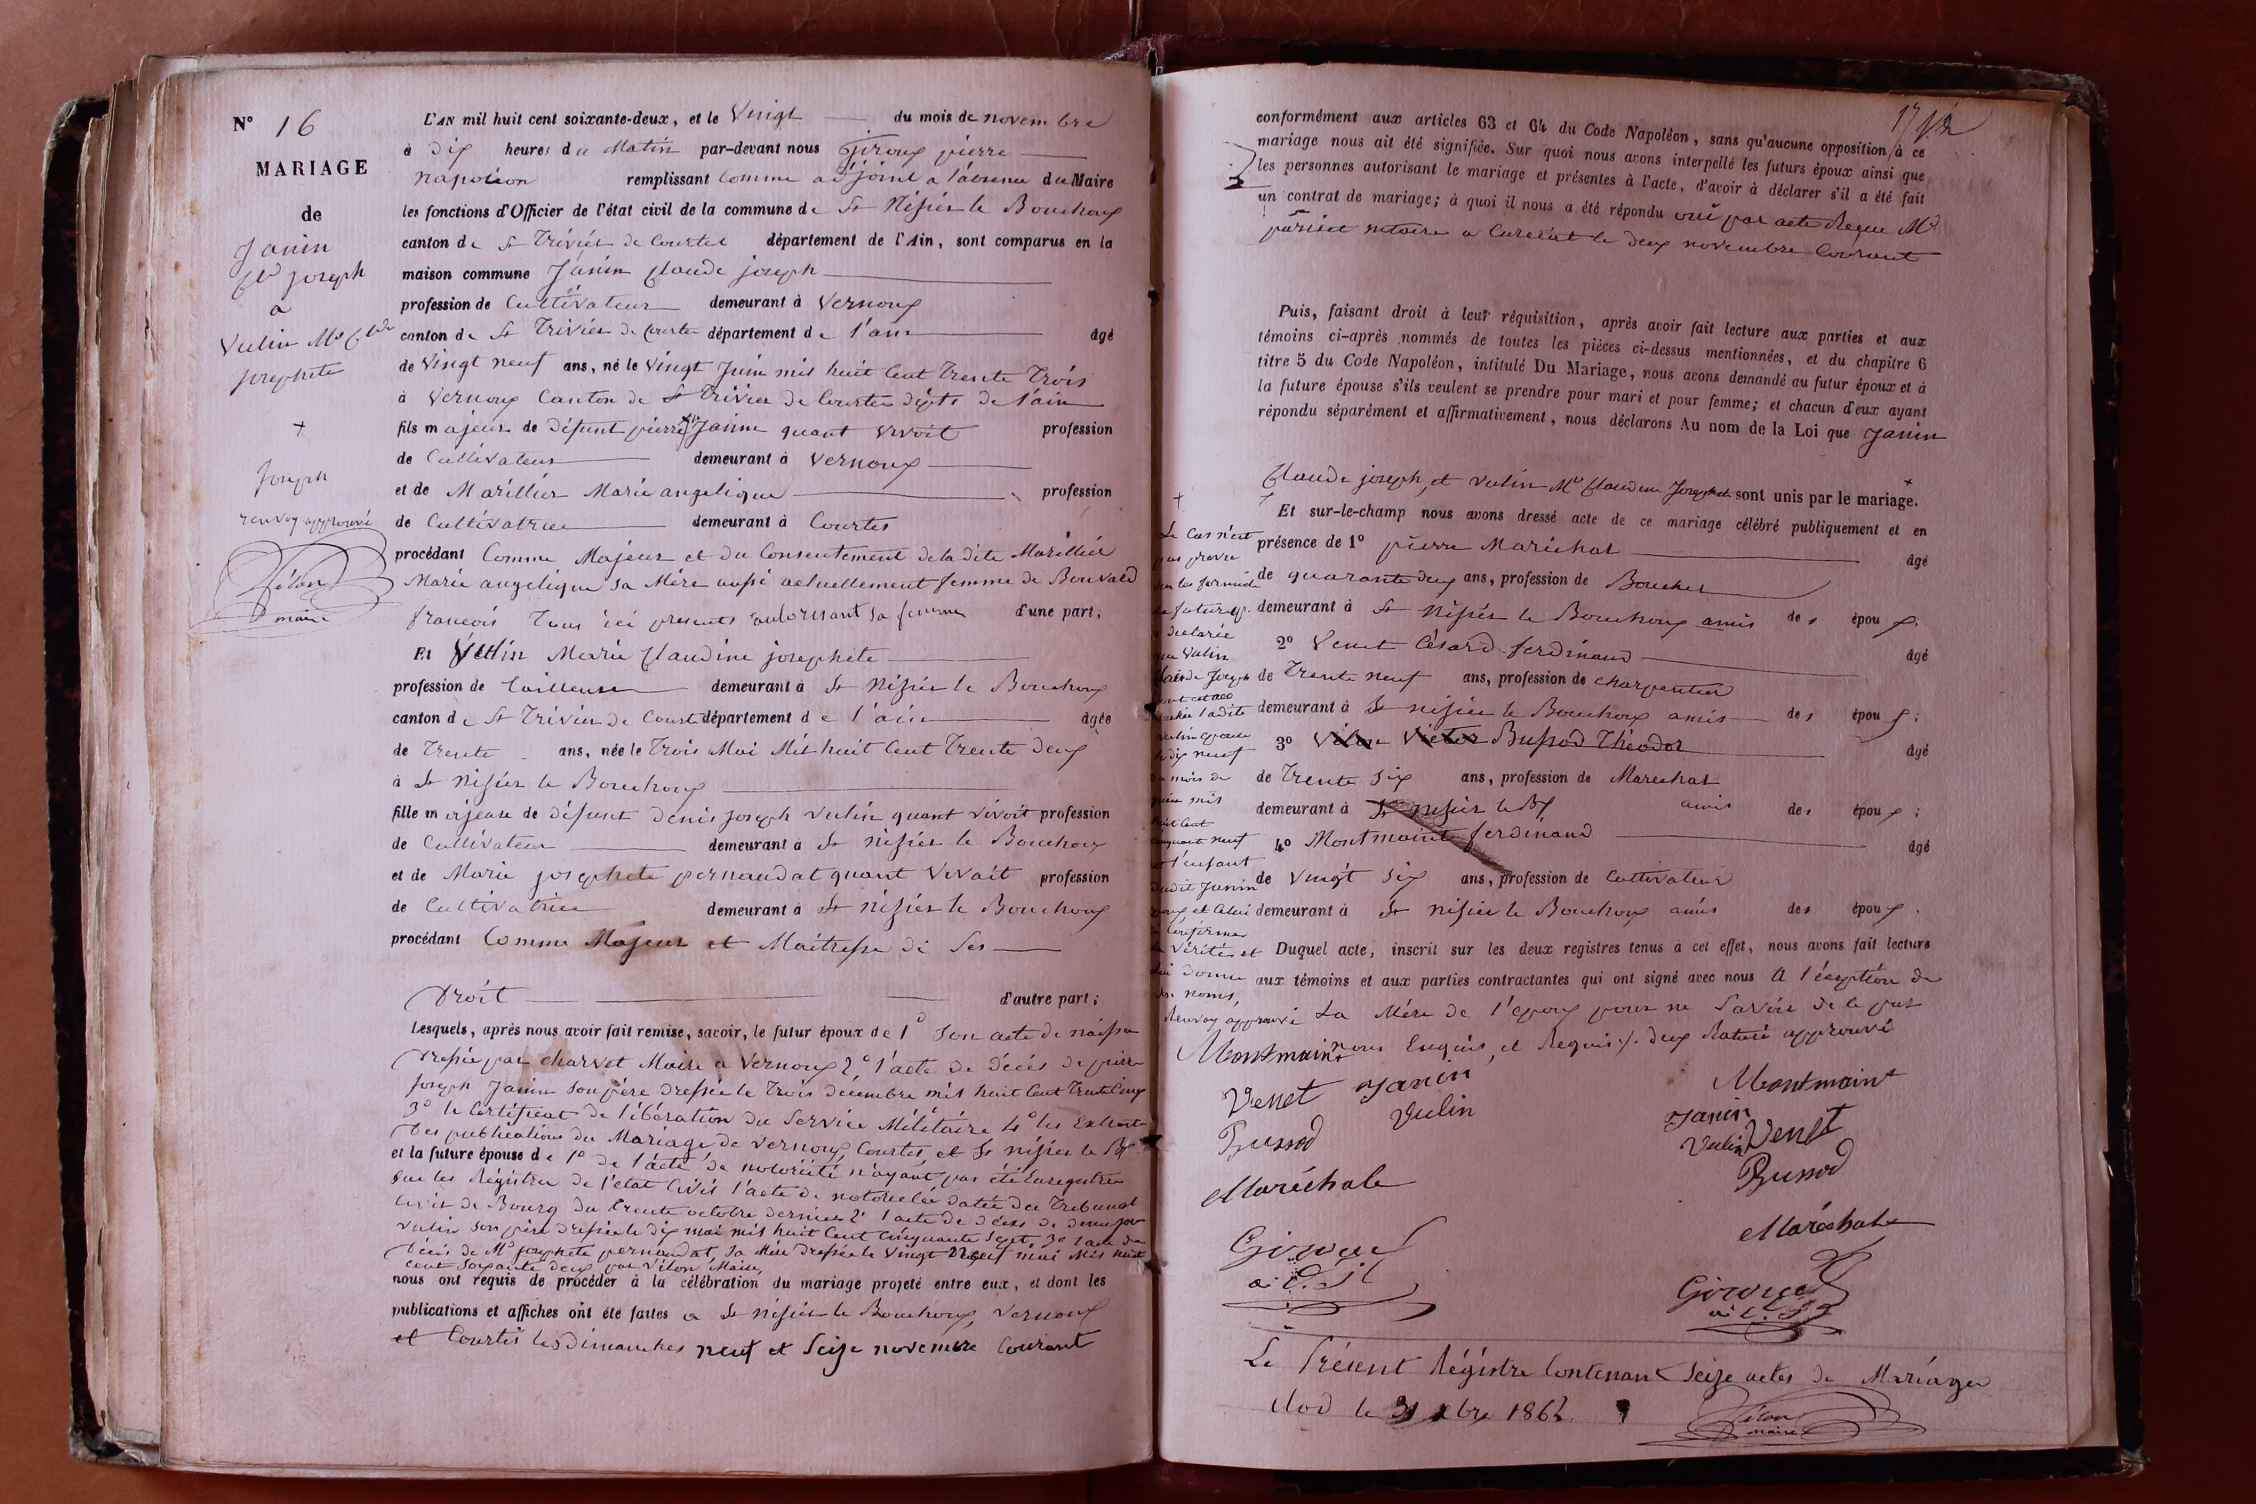 N° 16
MARIAGE
de
Janin
Cde joseph
a
Vulin Mie Clde
josephete
+
Joseph
renvoy approuvé
Vélon
maire
L'AN mil huit cent soixante-deux, et le Vingt du mois de novembre
à dix heures du Matin par-devant nous Giroux pierre
napoléon remplissant Comme adjoint a l'absence du Maire
les fonctions d'Officier de l'état civil de la commune de St Nisier le Bouchoux
canton de St Trivier de Courtes département de l'Ain, sont comparus en la
maison commune Janin Claude joseph
profession de Cultivateur demeurant à Vernoux
canton de St Trivier de Courtes département de l'ain âgé
de Vingt neuf ans, né le Vingt Juin mil huit Cent Trente Trois
à Vernoux Canton de St Trivier de Courtes dépts de l'ain
fils majeur de défunt pierre Janin quant vivoit profession
de Cultivateur demeurant à Vernoux
et de Marillier Marie angelique profession
de Cultivatrice demeurant à Courtes
procédant Comme Majeur et du Consentement de la dite Marillier
Marie angelique sa Mère aussi actuellement femme de Bouvard
françois Tous ici presents autorisant sa femme d'une part;
Et Vulin Marie Claudine josephete
profession de Tailleuse demeurant à St Nisier le Bouchoux
canton de St Trivier de Courtes département de l'ain âgée
de Trente ans, née le Trois Mai Mil huit Cent Trente deux
à St Nisier le Bouchoux
fille majeure de défunt denis joseph Vulin quant vivoit profession
de Cultivateur demeurant à St Nisier le Bouchoux
et de Marie josephete pernaudat quant Vivait profession
de Cultivatrice demeurant à St Nisier le Bouchoux
procédant Comme Majeur et Maitresse de Ses
Droit d'autre part;
Lesquels, après nous avoir fait remise, savoir, le futur époux de 1° Son acte de naissance
Dressée par Charvet Maire a Vernoux 2° l'acte de décès de pierre
Joseph Janin son père dressée le Trois décembre mil huit Cent Trente Cinq
3° le Certificat de libération du Service Militaire 4° les Extraits
Des publications du Mariage de Vernoux, Courtes, et St nisier le Bx
et la future épouse de 1° de l'acte de notoriété n'ayant pas été enregistrée
sur les Régistres de l'etat Civil l'acte de notoriétée datée du Tribunal
Civil de Bourg du Trente octobre dernier 2° l'acte de décès de denis jos
Vulin son père dressée le dix mai mil huit Cent Cinquante Sept 3° l'acte de
Décès de Mie josephete pernaudat, sa Mère dressée le Vingt Neuf mai Mil huit
cent soixante deux par Vélon Maire,
nous ont requis de procéder à la célébration du mariage projeté entre eux, et dont les
publications et affiches ont été faites a St Nisier le Bouchoux, Vernoux
et Courtes les Dimanches neuf et Seize novembre Courant
17
conformément aux articles 63 et 64 du Code Napoléon, sans qu'aucune opposition à ce
mariage nous ait été signifiée. Sur quoi nous avons interpellé les futurs époux ainsi que
les personnes autorisant le mariage et présentes à l'acte, d'avoir à déclarer s'il a été fait
un contrat de mariage; à quoi il nous a été répondu oui par acte Reçue Me
pariset notaire a Curciat le deux novembre Courant
Puis, faisant droit à leur réquisition, après avoir fait lecture aux parties et aux
témoins ci-après nommés de toutes les pièces ci-dessus mentionnées, et du chapitre 6
titre 5 du Code Napoléon, intitulé Du Mariage, nous avons demandé au futur époux et à
la future épouse s'ils veulent se prendre pour mari et pour femme; et chacun d'eux ayant
répondu séparément et affirmativement, nous déclarons Au nom de la Loi que Janin
Claude joseph, et Vulin Mie Claudine Josephete sont unis par le mariage.
Et sur-le-champ nous avons dressé acte de ce mariage célébré publiquement et en
présence de 1° pierre Maréchal âgé
de quarante deux ans, profession de Boucher
demeurant à St Nisier le Bouchoux amis des époux;
2° Venet Césard ferdinand âgé
de Trente neuf ans, profession de charpentier
demeurant à St nisier le Bouchoux amis des époux;
3° Vélon Victor Bussod Théodor âgé
de Trente Six ans, profession de Marechal
demeurant à St nisier le Bx amis des époux;
4° Montmaint ferdinand âgé
de Vingt Six ans, profession de Cultivateur
demeurant à St Nisier le Bouchoux amis des époux.
Duquel acte, inscrit sur les deux registres tenus à cet effet, nous avons fait lecture
aux témoins et aux parties contractantes qui ont signé avec nous A l'éxeption de
La Mère de l'epoux pour ne Savoir de le pas
nous Enquis, et Requis ./. deux Raturé approuvé
+
Le Cas n'est
pas prevu
Vulin
l'enfant
dudit Janin
Vérités et
noms,
Renvoy approuvé
Montmaint
Venet Janin
Vulin
Bussod
Maréchale
Giroux
adjt
Montmaint
Janin
Vulin Venet
Bussod
Maréchale
Giroux
adjt
Le Présent Régistre Contenant Seize actes de Mariages
Clod le 31 xbre 1862
Vélon
maire